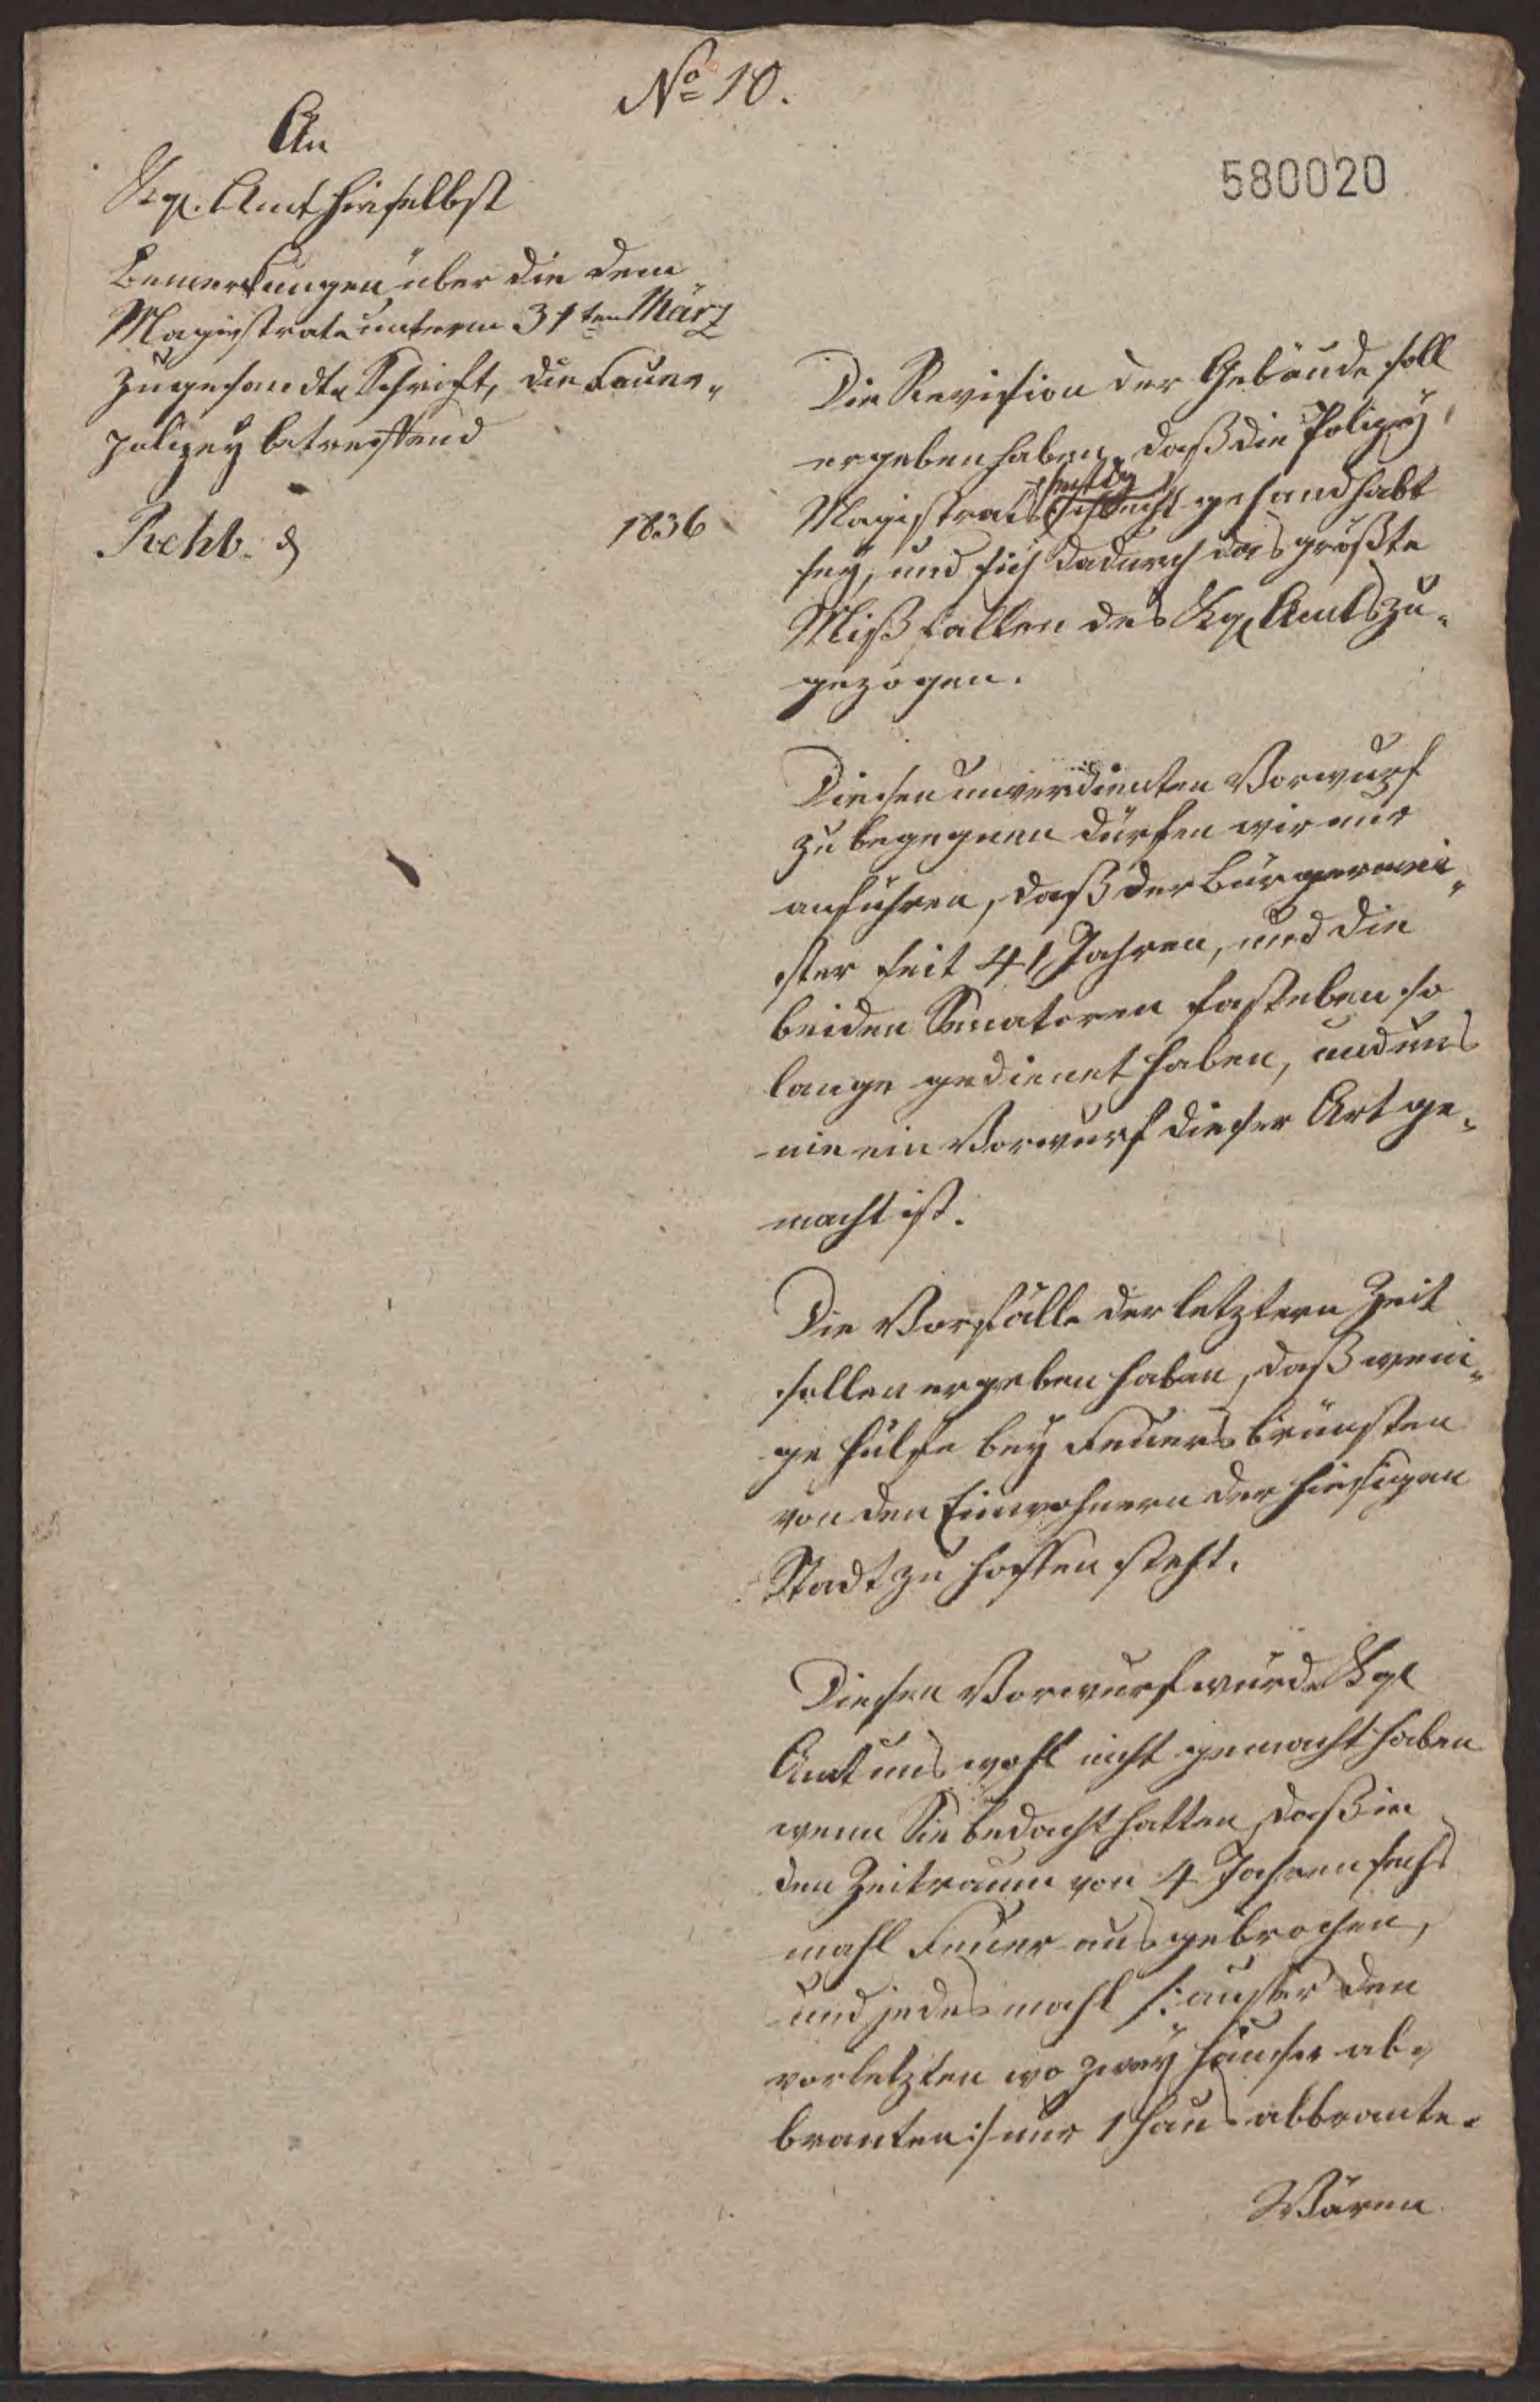 No 10.
An
Kgl. Amt hieselbst
580020
Bemerkungen über die dem
Magistrate unterm 31ten März
zugesandte Schrift, die Feuer-
polizey betreffend
Rehb. d 1836
Die Revision der Gebäude soll
ergeben haben, daß die Polizey
Magistrats schlecht gehandhabt
sey, und sich dadurch das größte
Mißfallen des Kgl. Amts zu-
gezogen.
Diesen unverdienten Vorwurf
zu begegnen dürfen wir nur
anführen, daß der Bürgermei-
ster seit 41 Jahren, und die
beiden Senatoren fast eben so
lange gedienet haben, und uns
nie ein Vorwurf dieser Art ge-
macht ist.
Die Vorfälle der letztern Zeit
sollen ergeben haben, daß weni-
ge Hülfe bey Feuersbrünsten
von den Einwohnern der hiesigen
Stadt zu hoffen steht.
Diesen Vorwurf würde Kgl
Amt uns wohl nicht gemacht haben
wenn Sie bedacht hatten, daß in
den Zeitraum von 4 Jahren sechs
mahl Feuer ausgebrochen,
und jedesmahl /: ausser den
vorletzten wo zwey Häuser ab-
branten :/ nur 1 Haus abbrante.
Wären